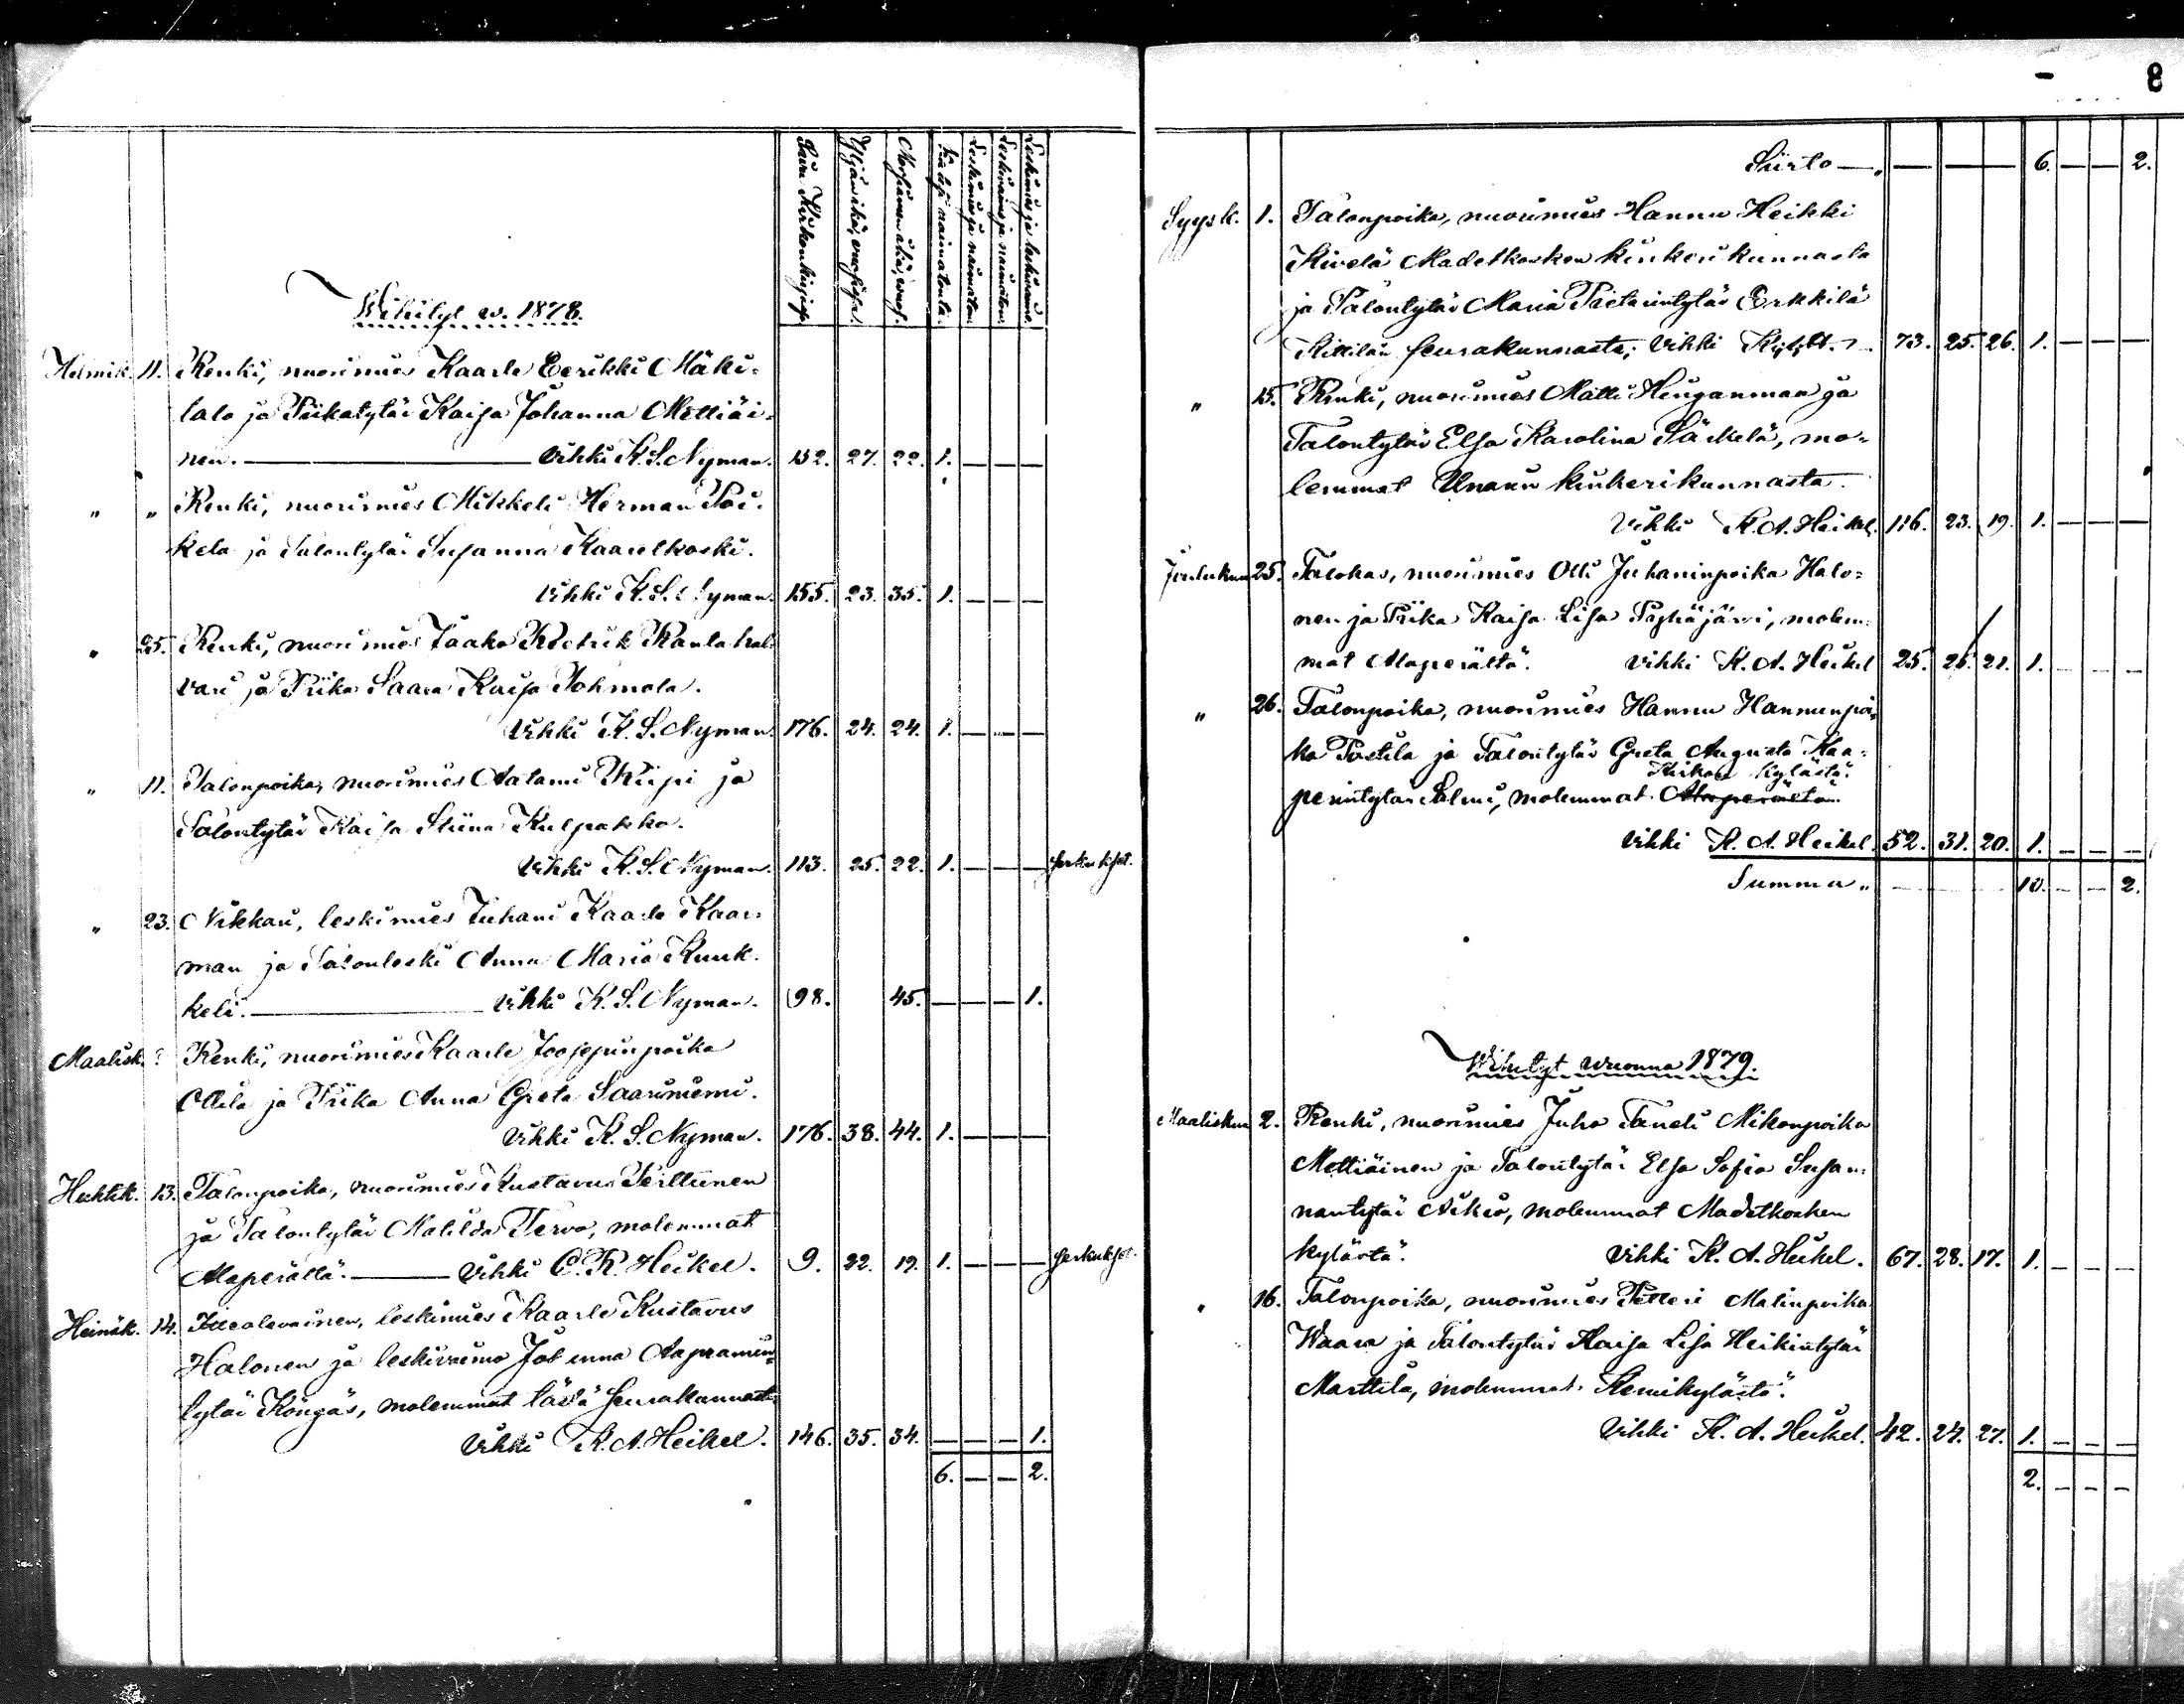 8
Wihityt v. 1878.
Helmik. 11. Renki, nuorimies Kaarle Eerikki Mäki-
talo ja Piikatytär Kaisa Johanna Mettiäi-
nen. Vihki K. S. Nyman. 152. 27. 22. 1. — — —
" " Renki, nuorimies Mikkeli Herman Poi-
kela ja Talontytär Susanna Kaarelkoski.
Vihki K. S. Nyman. 155. 23. 35. 1. — — —
" 25. Renki, nuorimies Jaako Rautahal-
vari ja Piika Saara Kaisa Pohmola.
Vihki K. S. Nyman. 176. 24. 24. 1. — — —
" 11. Talonpoika, nuorimies Aatami Riipi ja
Talontytär Kaisa Stiina Kulpakko.
Vihki K. S. Nyman. 113. 25. 22. 1. — — — serkukset.
" 23. Nikkari, leskimies Juhani Kaarle Kaar-
man ja Talonleski Anna Maria Kuuk-
keli. Vihki K. S. Nyman. 98. 45. — — — 1.
Maalisk. Renki, nuorimies Kaarle Joosepinpoika
Ollila ja Piika Anna Greta Saariniemi.
Vihki K. S. Nyman. 176. 38. 44. 1. — — —
Huhtik. 13. Talonpoika, nuorimies Kustavus Perttunen
ja Talontytär Matilda Tervo, molemmat
Alaperältä. Vihki C. R. Heikel. 9. 22. 19. 1. — — — serkukset.
Heinäk. 14. Itsealavainen, leskimies Kaarle Kustavus
Halonen ja leskivaimo Johanna Aapramin-
tytär Köngäs, molemmat tästä seurakunnasta
Vihki K. A. Heikel. 146. 35. 34. — — — 1.
6. — — 2.
Siirto — 6. — — 2.
Syysk. 1. Talonpoika, nuorimies Hannu Heikki
Kivelä Madetkosken kinkerikunnasta
ja Talontytär Maria Pietarintytär Erkkilä
Kittilän seurakunnasta; Vihki 73. 25. 26. 1. — — —
" 15. Renki, nuorimies Matti Heuganmaa ja
Talontytär Elsa Karolina Säckelä, mo-
lemmat Unarin kinkerikunnasta.
Vihki K. A. Heikel. 116. 23. 19. 1. — — —
Joulukuu 25. Talokas, nuorimies Olli Juhaninpoika Halo-
nen ja Piika Kaisa Lisa Pyhäjärvi, molem-
mat Alaperältä. Vihki K. A. Heikel 25. 25. 21. 1. — — —
" 26. Talonpoika, nuorimies Hannu Hannunpoi-
ka Postila ja Talontytär Greta Augusta Kaa-
Kirkon kylästä.
perintytär Salmi, molemmat Alaperältä.
Vihki K. A. Heikel. 52. 31. 20. 1. — — —
Summa " 10. — — 2.
Wihityt vuonna 1879.
Maaliskuu 2. Renki, nuorimies Juho Taneli Mikonpoika
Mettiäinen ja Talontytär Elsa Sofia Susan-
nantytär Aikio, molemmat Madetkosken
kylästä. Vihki K. A. Heikel. 67. 28. 17. 1. — — —
" 16. Talonpoika, nuorimies Petteri Matinpoika
Waara ja Talontytär Kaisa Lisa Heikintytär
Marttila, molemmat Kemikylästä.
Vihki K. A. Heikel. 42. 24. 27. 1. — — —
2. — — —